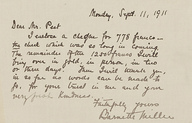 Monday, Sept. 11, 1911
Dear Mr. Peet
I enclose a cheque for 778 francs—
the check which was so long in coming.
The remainder of the 1200 francs I will
bring over in gold, in person, in two
or three days. Then I will thank you,
in as far as words can be made to
do, for your trust in me and your
very great kindness.
Faithfully yours
Barnette Miller